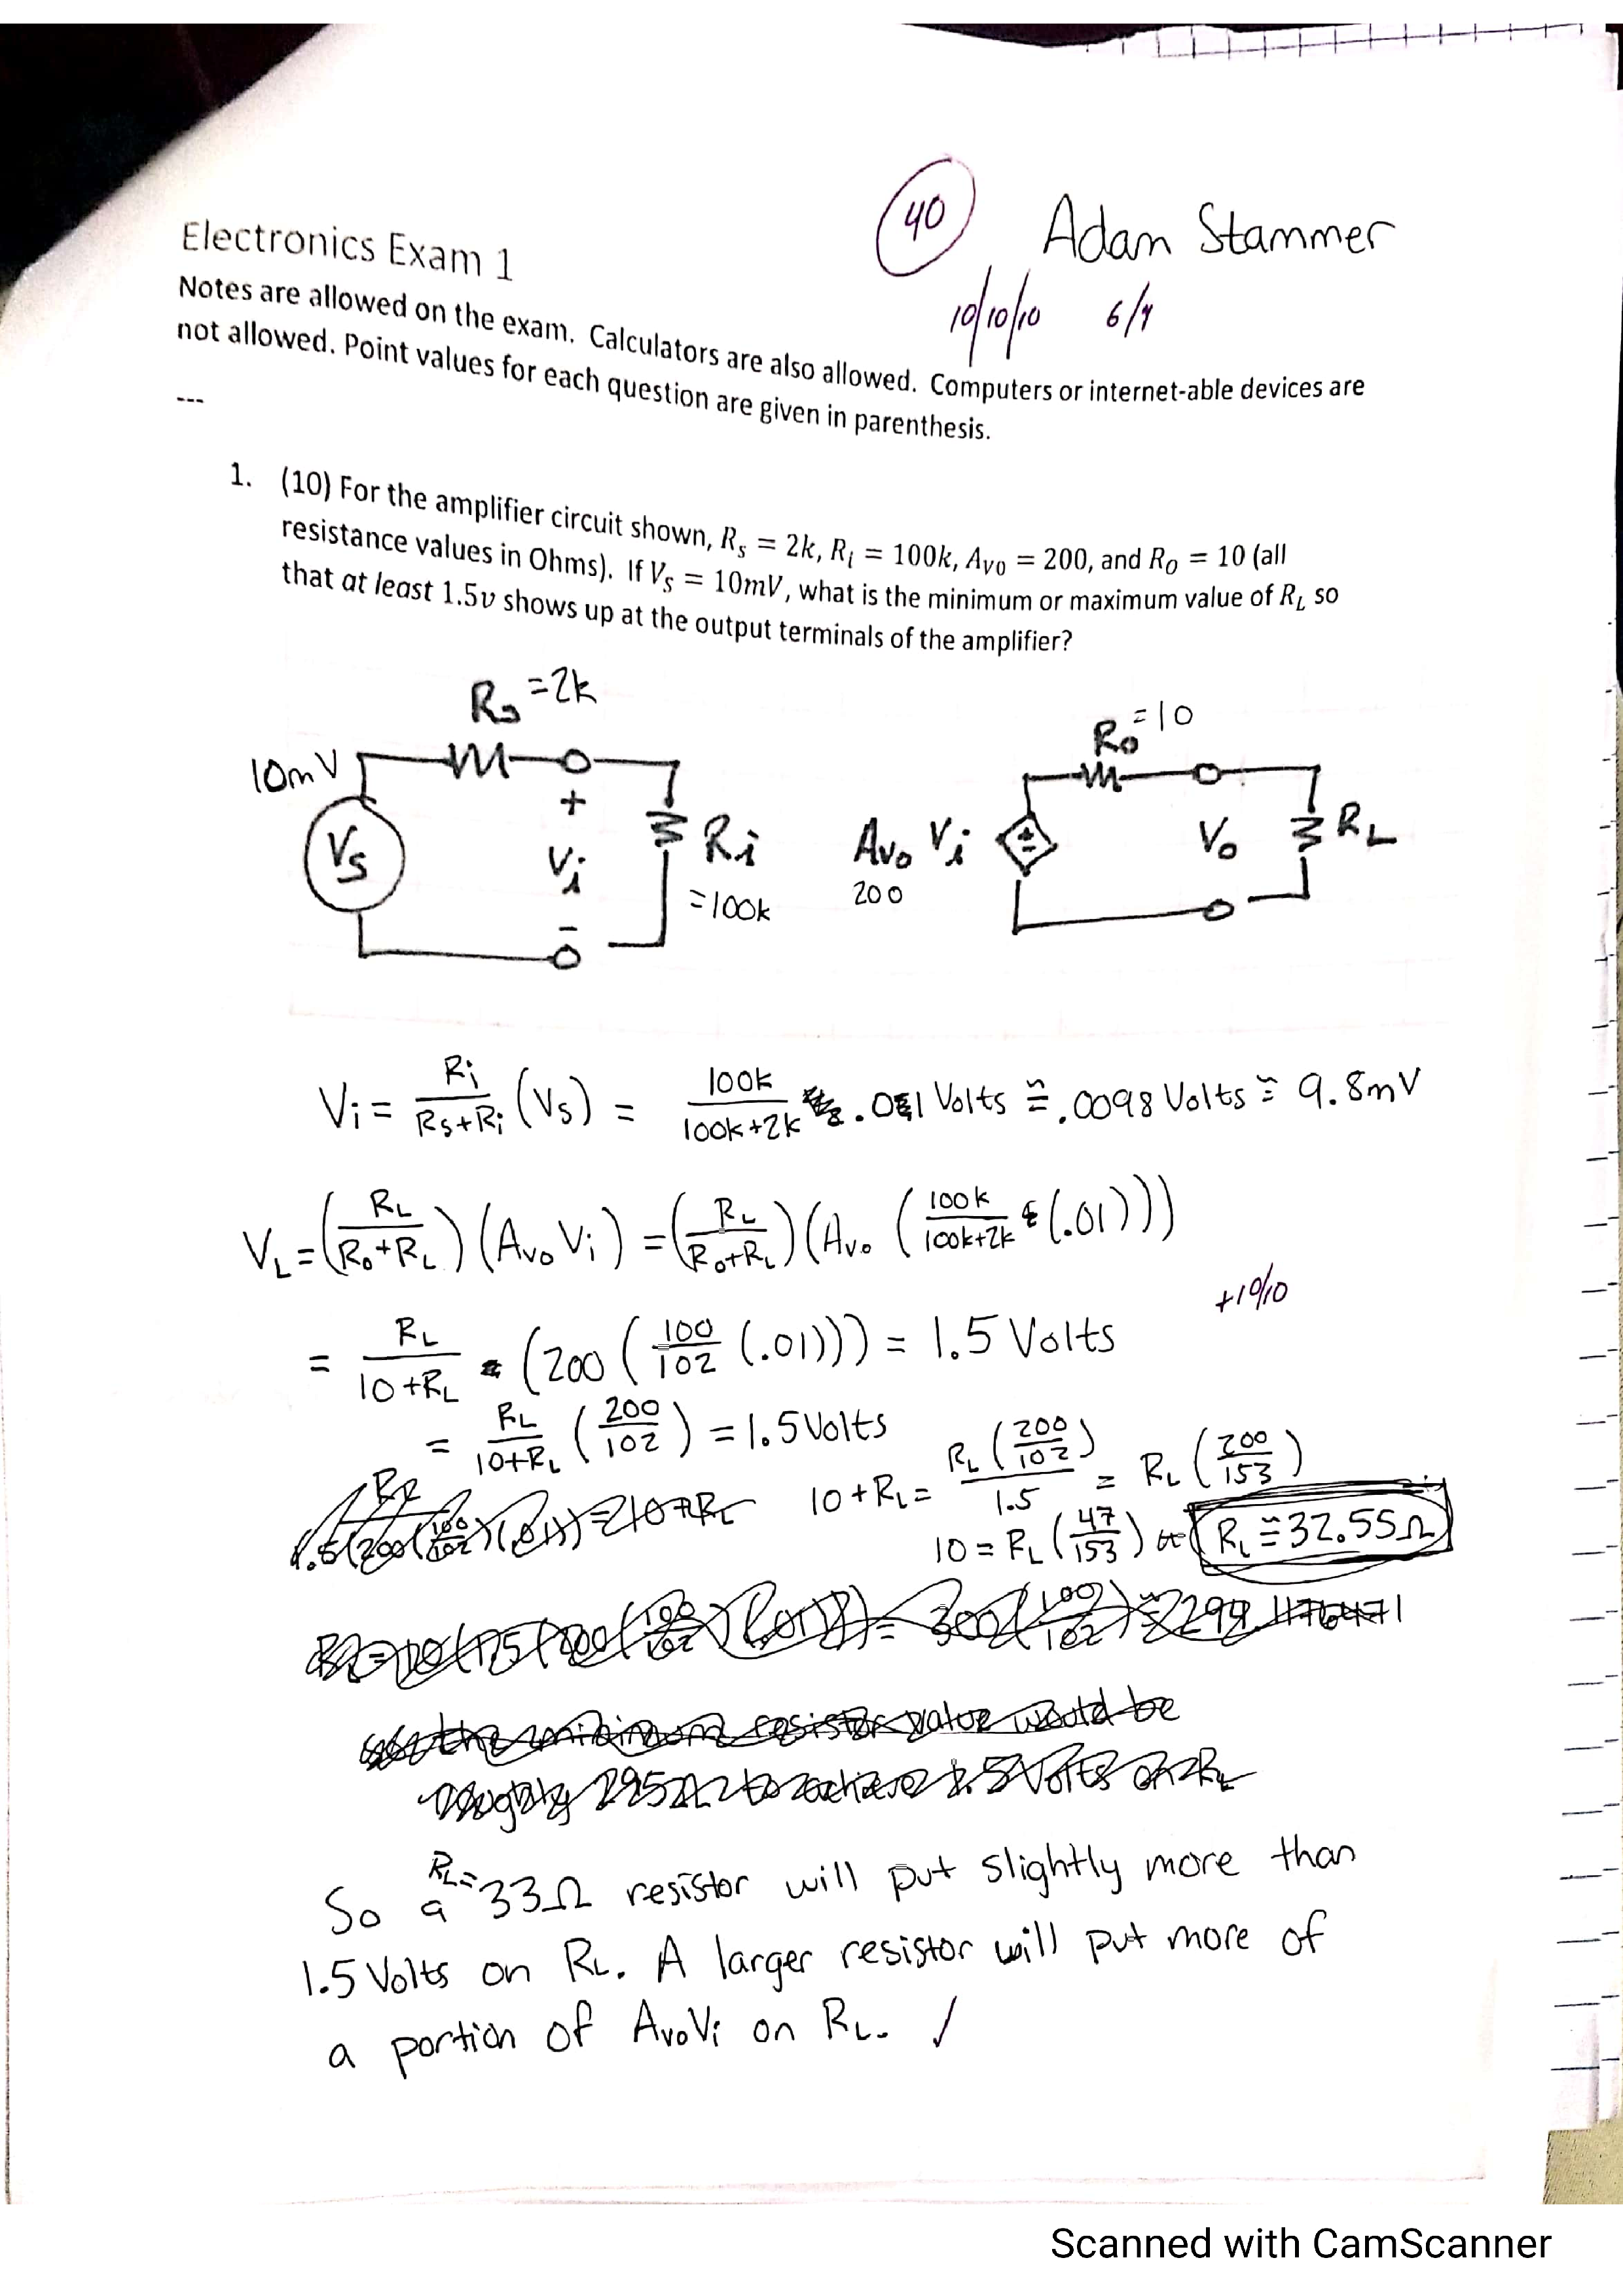 40
Adam Stammer
Electronics Exam 1
10/10/10 6/4
Notes are allowed on the exam. Calculators are also allowed. Computers or internet-able devices are
not allowed. Point values for each question are given in parenthesis.
---
1. (10) For the amplifier circuit shown, R_s = 2k, R_i = 100k, A_vo = 200, and R_o = 10 (all
resistance values in Ohms). If V_s = 10mV, what is the minimum or maximum value of R_L so
that at least 1.5v shows up at the output terminals of the amplifier?
Rs =2k
Ro =10
10mV
+
Vs
Vi
Ri
Avo Vi
±
Vo
RL
=100k
200
-
Vi = Ri/(Rs+Ri) (Vs) = 100k/(100k+2k) .01 Volts ≅ .0098 Volts ≅ 9.8mV
VL = (RL/(Ro+RL)) (Avo Vi) = (RL/(Ro+RL)) (Avo (100k/(100k+2k) * (.01)))
+10/10
= RL/(10+RL) * (200 (100/102 (.01))) = 1.5 Volts
= RL/(10+RL) (200/102) = 1.5 Volts
10+RL = RL(200/102)/1.5 = RL (200/153)
10 = RL (47/153) RL ≅ 32.55Ω
So a RL= 33Ω resistor will put slightly more than
1.5 Volts on RL. A larger resistor will put more of
a portion of AvoVi on RL. ✓
Scanned with CamScanner